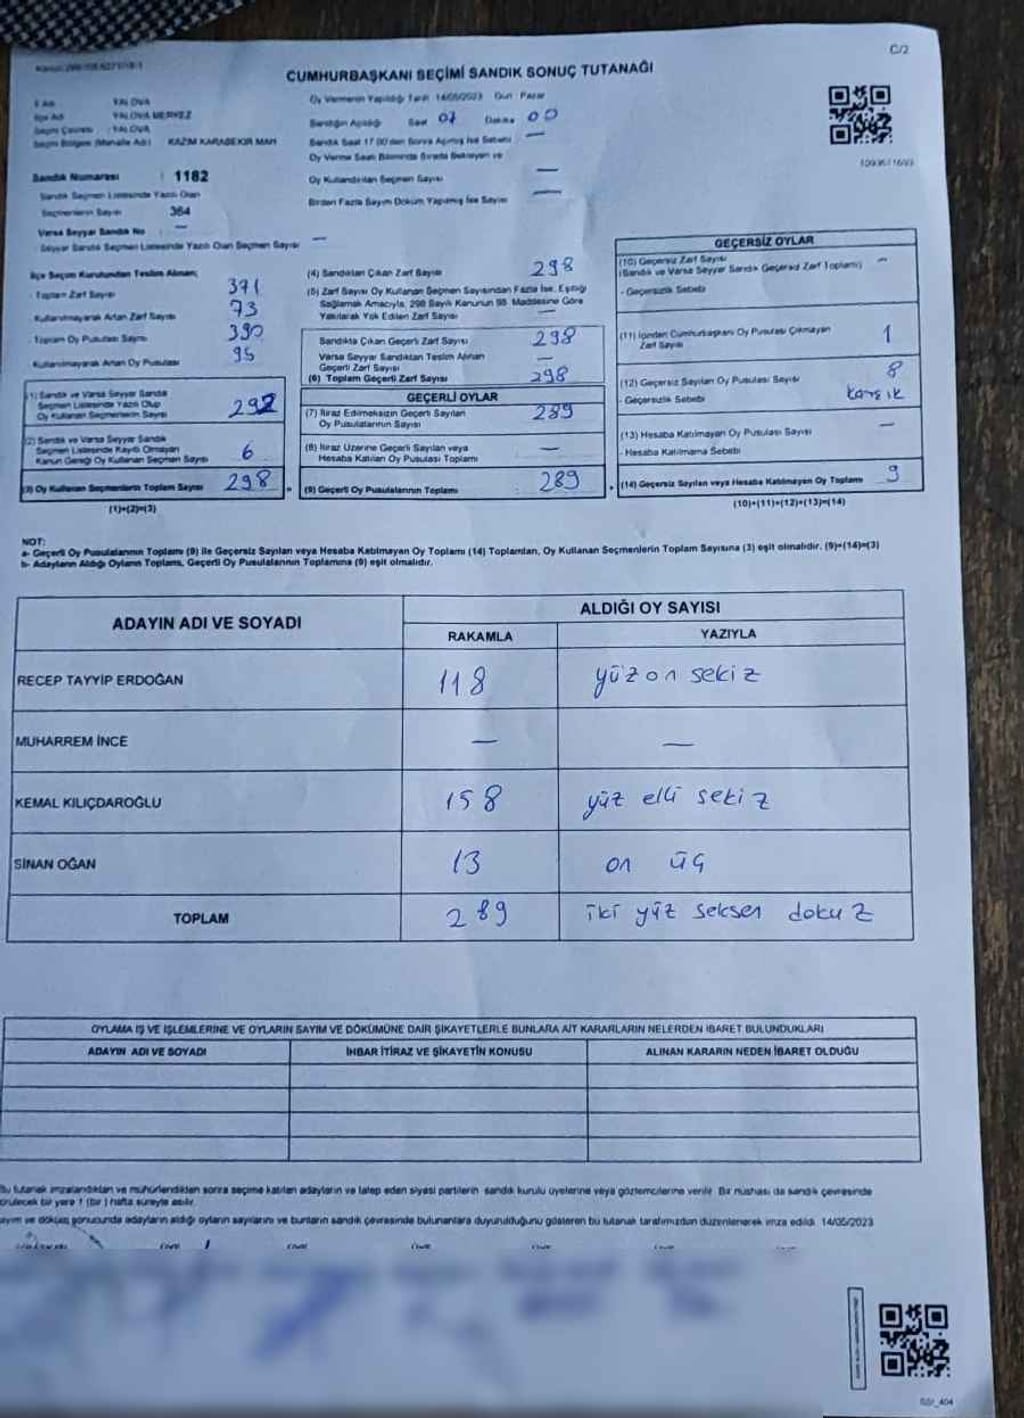 C/2
CUMHURBAŞKANI SEÇİMİ SANDIK SONUÇ TUTANAĞI
İl Adı YALOVA
İlçe Adı YALOVA MERKEZ
Seçim Çevresi : YALOVA
Seçim Bölgesi (Mahalle Adı) KAZIM KARABEKİR MAH
Sandık Numarası : 1182
Sandık Seçmen Listesinde Yazılı Olan
Seçmenlerin Sayısı 364
Varsa Seyyar Sandık No —
Seyyar Sandık Seçmen Listesinde Yazılı Olan Seçmen Sayısı —
Oy Vermenin Yapıldığı Tarih 14/05/2023 Gün : Pazar
Sandığın Açıldığı Saat 07 Dakika 00
Sandık Saat 17.00'den Sonra Açılmış İse Sebebi —
Oy Verme Saati Bitiminde Sırada Bekleyen ve
Oy Kullandırılan Seçmen Sayısı —
Birden Fazla Sayım Döküm Yapılmış İse Sayısı —
İlçe Seçim Kurulundan Teslim Alınan;
- Toplam Zarf Sayısı 371
Kullanılmayarak Artan Zarf Sayısı 73
- Toplam Oy Pusulası Sayısı 390
Kullanılmayarak Artan Oy Pusulası 95
(1) Sandık ve Varsa Seyyar Sandık
Seçmen Listesinde Yazılı Olup
Oy Kullanan Seçmenlerin Sayısı 292
(2) Sandık ve Varsa Seyyar Sandık
Seçmen Listesinde Kayıtlı Olmayan
Kanun Gereği Oy Kullanan Seçmen Sayısı 6
(3) Oy Kullanan Seçmenlerin Toplam Sayısı 298
(1)+(2)=(3)
(4) Sandıktan Çıkan Zarf Sayısı 298
(5) Zarf Sayısı Oy Kullanan Seçmen Sayısından Fazla İse, Eşitliği
Sağlamak Amacıyla, 298 Sayılı Kanunun 98. Maddesine Göre
Yakılarak Yok Edilen Zarf Sayısı —
Sandıkta Çıkan Geçerli Zarf Sayısı 298
Varsa Seyyar Sandıktan Teslim Alınan
Geçerli Zarf Sayısı —
(6) Toplam Geçerli Zarf Sayısı 298
GEÇERLİ OYLAR
(7) İtiraz Edilmeksizin Geçerli Sayılan
Oy Pusulalarının Sayısı 289
(8) İtiraz Üzerine Geçerli Sayılan veya
Hesaba Katılan Oy Pusulası Toplamı —
(9) Geçerli Oy Pusulalarının Toplamı : 289
GEÇERSİZ OYLAR
(10) Geçersiz Zarf Sayısı
(Sandık ve Varsa Seyyar Sandık Geçersiz Zarf Toplamı) —
- Geçersizlik Sebebi
(11) İçinden Cumhurbaşkanı Oy Pusulası Çıkmayan
Zarf Sayısı 1
(12) Geçersiz Sayılan Oy Pusulası Sayısı 8
- Geçersizlik Sebebi karışık
(13) Hesaba Katılmayan Oy Pusulası Sayısı —
- Hesaba Katılmama Sebebi
(14) Geçersiz Sayılan veya Hesaba Katılmayan Oy Toplamı 9
(10)+(11)+(12)+(13)=(14)
NOT:
a- Geçerli Oy Pusulalarının Toplamı (9) ile Geçersiz Sayılan veya Hesaba Katılmayan Oy Toplamı (14) Toplamları, Oy Kullanan Seçmenlerin Toplam Sayısına (3) eşit olmalıdır. (9)+(14)=(3)
b- Adayların Aldığı Oyların Toplamı, Geçerli Oy Pusulalarının Toplamına (9) eşit olmalıdır.
ADAYIN ADI VE SOYADI
ALDIĞI OY SAYISI
RAKAMLA YAZIYLA
RECEP TAYYİP ERDOĞAN 118 yüz on sekiz
MUHARREM İNCE — —
KEMAL KILIÇDAROĞLU 158 yüz elli sekiz
SİNAN OĞAN 13 on üç
TOPLAM 289 iki yüz seksen dokuz
OYLAMA İŞ VE İŞLEMLERİNE VE OYLARIN SAYIM VE DÖKÜMÜNE DAİR ŞİKAYETLERLE BUNLARA AİT KARARLARIN NELERDEN İBARET BULUNDUKLARI
ADAYIN ADI VE SOYADI İHBAR İTİRAZ VE ŞİKAYETİN KONUSU ALINAN KARARIN NEDEN İBARET OLDUĞU
Bu tutanak imzalandıktan ve mühürlendikten sonra seçime katılan adayların ve talep eden siyasi partilerin sandık kurulu üyelerine veya gözlemcilerine verilir. Bir nüshası da sandık çevresinde
görülecek bir yere 1 (bir) hafta süreyle asılır.
Sayım ve döküm sonucunda adayların aldığı oyların sayılarını ve bunların sandık çevresinde bulunanlara duyurulduğunu gösteren bu tutanak tarafımızdan düzenlenerek imza edildi. 14/05/2023